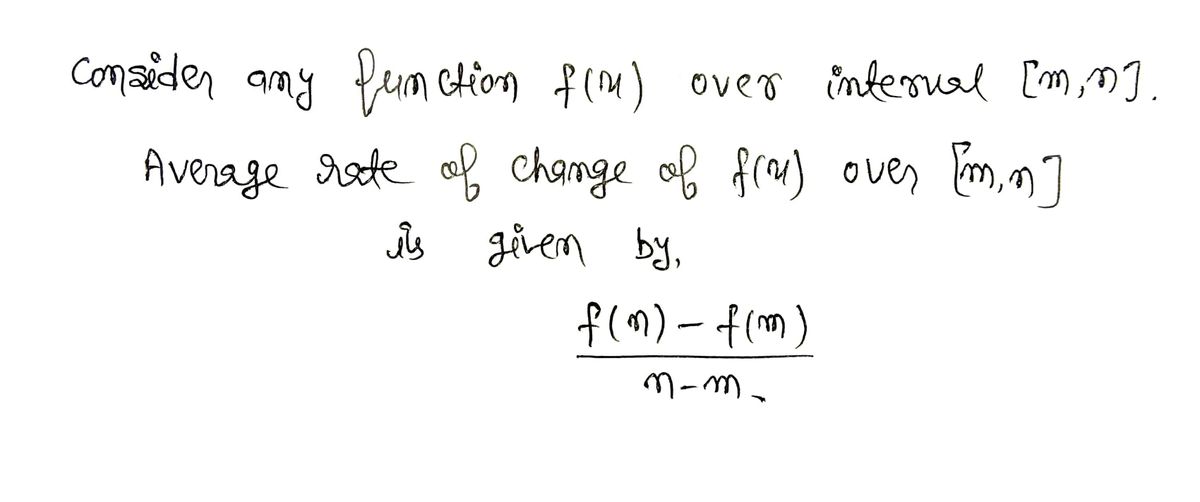 Consider any function f(x) over interval [m,n].
Average rate of change of f(x) over [m,n]
is given by,
f(n) - f(m)
n-m.